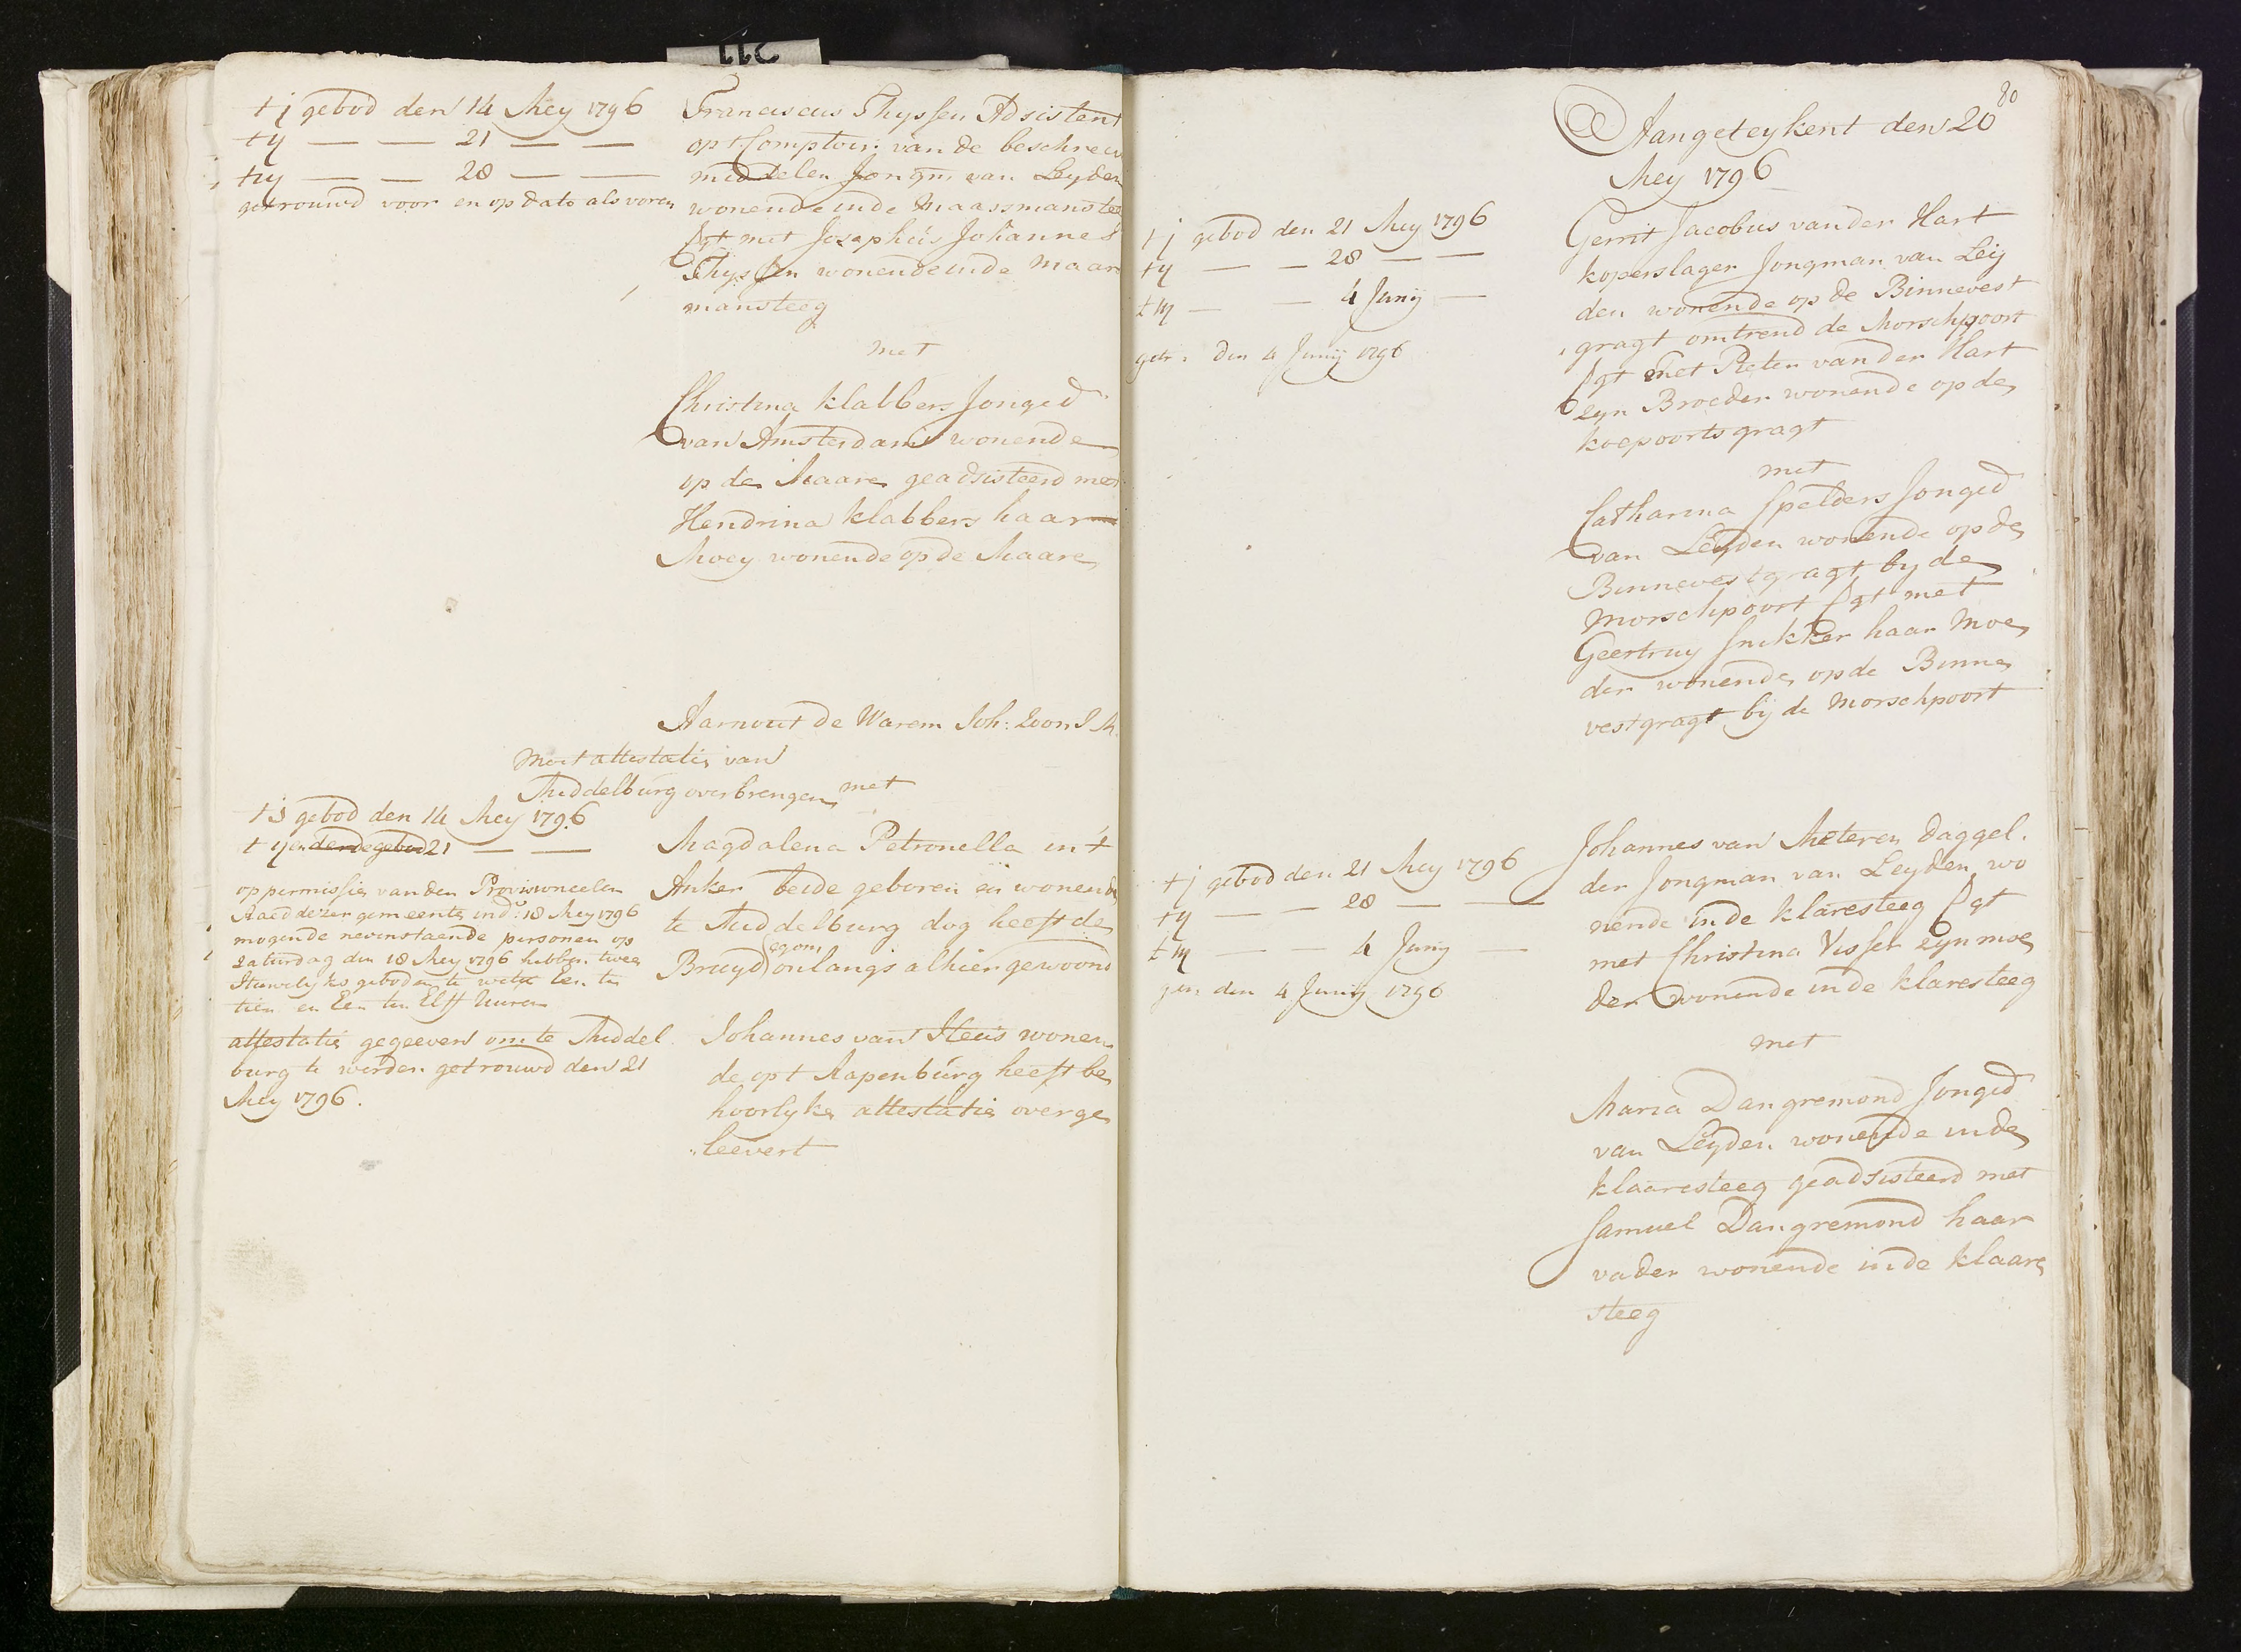 311
t j gebod den 14 Mey 1796
t ij — — 21 — —
t iij — — 28 — —
getrouwd voor en op dato als voren
Franciscus Thyssen Adsistent
op t Comptoir: van de beschreev
middelen Jongm van Leyden
wonende inde Maarsmanstee
Vgt met Josephus Johannes
Thyssen wonende inde Maars
mansteeg
met
Christina Klabbers Jonged
van Amsterdam wonende
op de Maare geadsisteerd met
Hendrina Klabbers haar
Moey wonende op de Maare
Aarnout de Warem Joh: Zoon J M.
Moet attestatie van
Middelburg overbrengen met
t j gebod den 14 Mey 1796
t ij en derde gebod 21 — —
op permissie van den Provisioneelen
Raed dezer gemeente in d: 18 Mey 1796
mogende nevenstaende personen op
Zaturdag den 18 Mey 1796 hebben twee
Huwelyks geboden te wete Een te
tien en Een ten Elff Uuren
attestatie gegeeven om te Middel
burg te worden getrouwd den 21
Mey 1796.
Magdalena Petronella in t
Anker beide geboren en wonende
te Middelburg dog heeft de
Bruyd onlangs alhier gewoond
Johannes van Heus wonen
de op t Rapenburg heeft be
hoorlyke attestatie overge
leevert
80
Aangeteykent den 20
Mey 1796
t j gebod den 21 Mey 1796
t ij — — 28 — —
t iij — — 4 Junij —
getr: den 4 Junij 1796
Gerrit Jacobus van der Hart
koperslager Jongman van Ley
den wonende op de Binnevest
gragt omtrend de Morschpoort
Vgt met Pieter van der Hart
zyn Broeder wonende op de
koepoortsgragt
met
Catharina Spelders Jonged
van Leyden wonende op de
Binnevestgragt by de
Morschpoort Vgt met
Geertruy Snikker haar Moe
der wonende op de Binne
vestgragt bij de Morschpoort
t j gebod den 21 Mey 1796
t ij — — 28 — —
t iij — — 4 Junij —
get: den 4 Junij 1796
Johannes van Meteren daggel.
der Jongman van Leyden wo
nende in de klaresteeg Vgt
met Christina Visser zyn moe
der wonende in de klaresteeg
met
Maria Dangremond Jonged
van Leyden wonende in de
klaaresteeg geadsisteerd met
Samuel Dangremond haar
vader wonende in de klaare
steeg